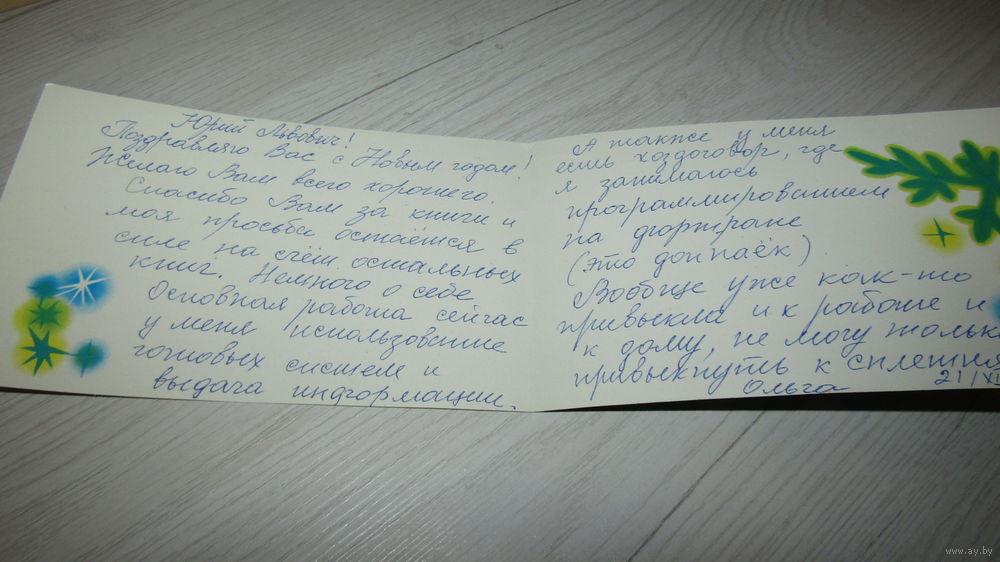 Юрий Львович!
Поздравляю Вас с Новым годом!
Желаю Вам всего хорошего.
Спасибо Вам за книги и
моя просьба остаётся в
силе на счёт остальных
книг. Немного о себе
Основная работа сейчас
у меня использование
готовых систем и
выдача информации.
А также у меня
есть хоздоговор, где
я занимаюсь
программированием
на фортране
(это допаёк)
Вообще уже как-то
привыкла и к работе и
к дому, не могу только
привыкнуть к сплетня
Ольга 21/XI
www.ay.by